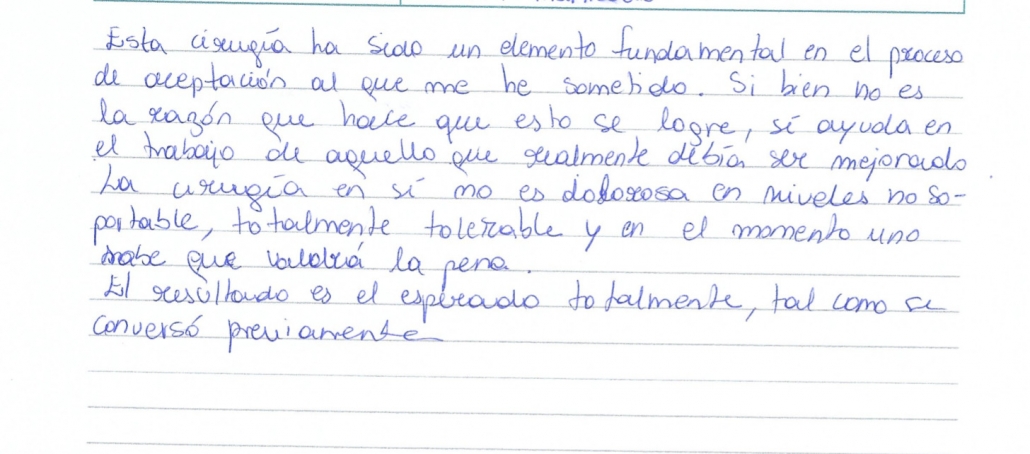 Esta cirugía ha sido un elemento fundamental en el proceso
de aceptación al que me he sometido. Si bien no es
la razón que hace que esto se logre, sí ayuda en
el trabajo de aquello que realmente debía ser mejorado
La cirugía en sí no es dolorosa en niveles no so-
portable, totalmente tolerable y en el momento uno
sabe que valdrá la pena.
El resultado es el esperado totalmente, tal como se
conversó previamente